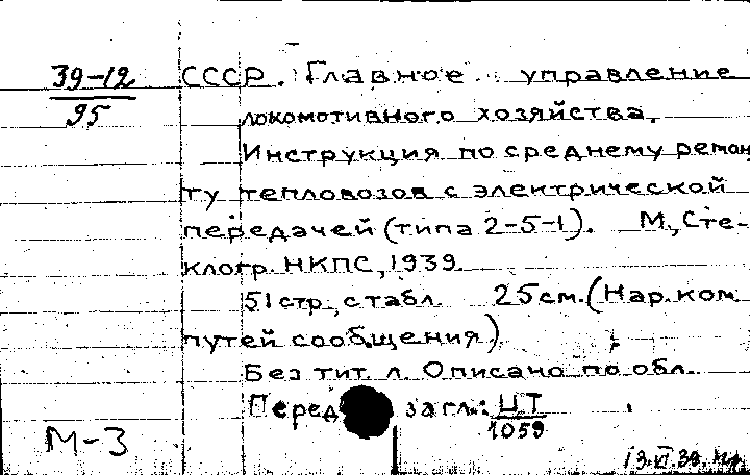 39-12
95
СССР. Главное управление
локомотивного хозяйства.
Инструкция по среднему ремон
ту тепловозов с электрической
передачей (типа 2-5-1). М., Сте-
клогр. НКПС, 1939.
51 стр., с табл. 25 см. (Нар. ком.
путей сообщения)
Без тит. л. Описано по обл.
Перед загл.: ЦТ
1059
М-3
13.VI.39.